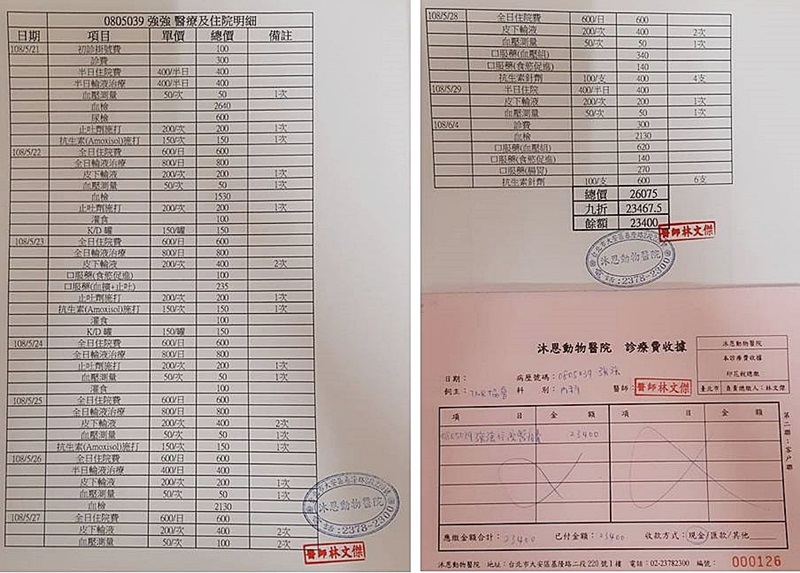 0805039 強強 醫療及住院明細
日期 項目 單價 總價 備註
108/5/21 初診掛號費 100
診費 300
半日住院費 400/半日 400
半日輸液治療 400/半日 400
血壓測量 50/次 50 1次
血檢 2640
尿檢 600
止吐劑施打 200/次 200 1次
抗生素(Amoxisol)施打 150/次 150 1次
108/5/22 全日住院費 600/日 600
全日輸液治療 800/日 800
皮下輸液 200/次 200 1次
血壓測量 50/次 50 1次
血檢 1530
止吐劑施打 200/次 200 1次
灌食 100
K/D 罐 150/罐 150
108/5/23 全日住院費 600/日 600
全日輸液治療 800/日 800
皮下輸液 200/次 400 2次
口服藥(食慾促進) 100
口服藥(血擴+止吐) 235
止吐劑施打 200/次 200 1次
抗生素(Amoxisol)施打 150/次 150 1次
灌食 100
K/D 罐 150/罐 150
108/5/24 全日住院費 600/日 600
全日輸液治療 800/日 800
止吐劑施打 200/次 200 1次
血壓測量 50/次 50 1次
灌食 100
108/5/25 全日住院費 600/日 600
全日輸液治療 800/日 800
皮下輸液 200/次 400 2次
血壓測量 50/次 50 1次
抗生素(Amoxisol)施打 150/次 150 1次
108/5/26 全日住院費 600/日 600
半日輸液治療 400/日 400
皮下輸液 200/次 200 1次
血壓測量 50/次 50 1次
血檢 2130
108/5/27 全日住院費 600/日 600
皮下輸液 200/次 400 2次
血壓測量 50/次 100 2次
沐恩動物醫院
電話:2378-2300
醫師林文傑
108/5/28 全日住院費 600/日 600
皮下輸液 200/次 400 2次
血壓測量 50/次 50 1次
口服藥(血壓組) 340
口服藥(食慾促進) 140
抗生素針劑 100/支 400 4支
108/5/29 半日住院 400/半日 400
皮下輸液 200/次 200 1次
血壓測量 50/次 50 1次
108/6/4 診費 300
血檢 2130
口服藥(血壓組) 620
口服藥(食慾促進) 140
口服藥(腸胃) 270
抗生素針劑 100/支 600 6支
總價 26075
九折 23467.5
餘額 23400
醫師林文傑
台北市大安區基隆路
沐恩動物醫院
電話:2378-2300
沐恩動物醫院 診療費收據
沐恩動物醫院
本診療費收據
印花稅總繳
臺北市 負責總繳人:林文傑
日期: 病歷號碼:0805039 強強
飼主:TNR協會 科別:內科 醫師:醫師林文傑
項目 金額 項目 金額
23400
第二聯:客戶聯
應繳金額合計:23400 已付金額:23400 收款方式:現金/匯款/其他
沐恩動物醫院 地址:台北市大安區基隆路二段220號1樓 電話:02-23782300 編號: 000126